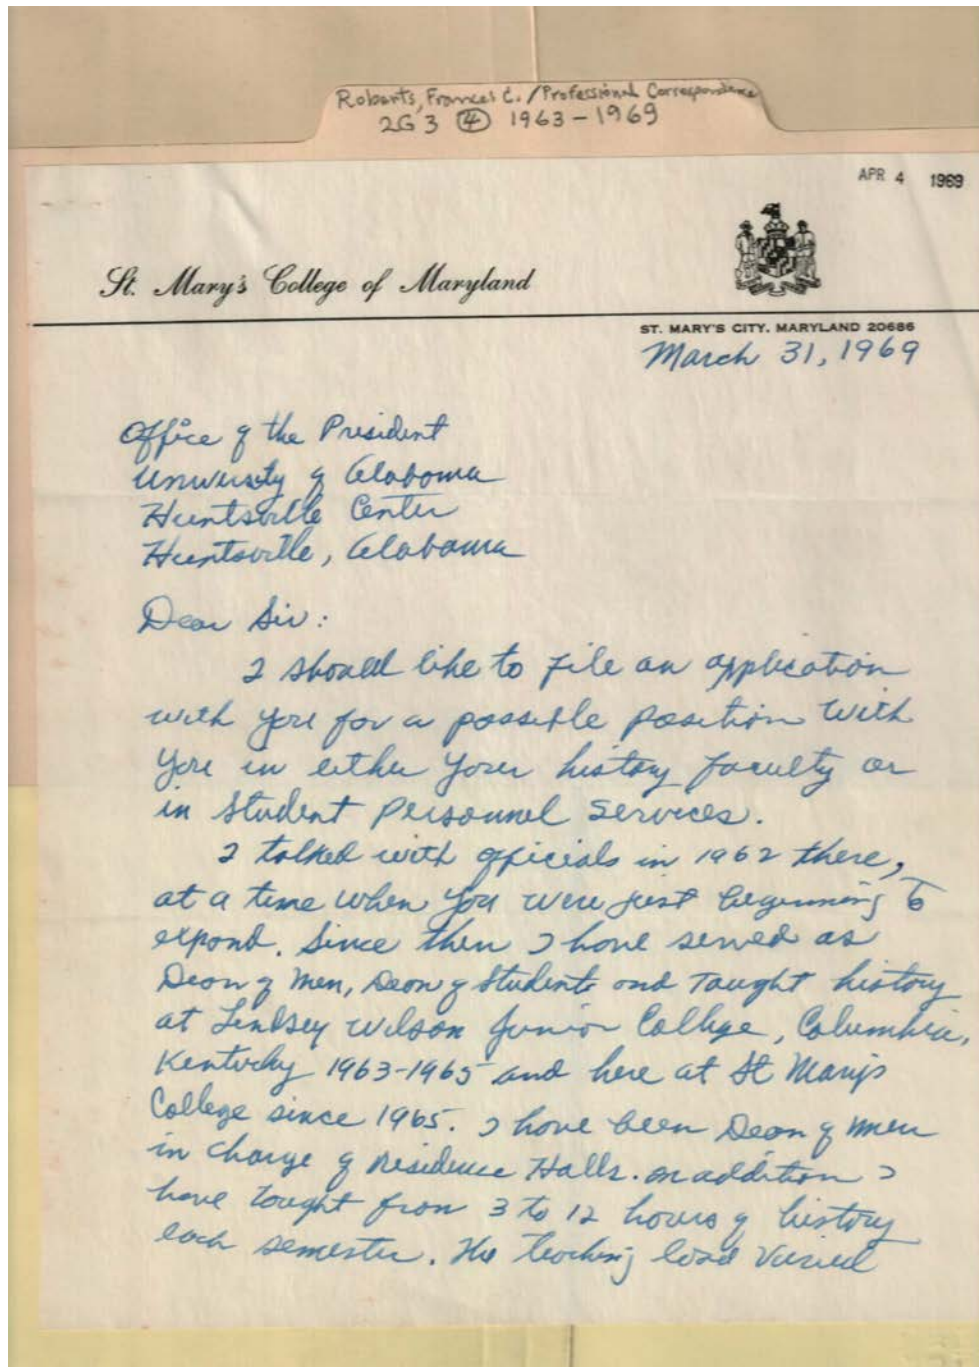 Roberts, Frances C. / Professional Correspondence
2G 3 ④ 1963-1969
APR 4 1969
St. Mary's College of Maryland
ST. MARY'S CITY, MARYLAND 20686
March 31, 1969
Office of the President
University of Alabama
Huntsville Center
Huntsville, Alabama
Dear Sir:
I should like to file an application
with you for a possible position with
you in either your history faculty or
in Student Personnel Services.
I talked with officials in 1962 there,
at a time when you were just beginning to
expand. Since then I have served as
Dean of Men, Dean of Students and taught history
at Lindsey Wilson Junior College, Columbia,
Kentucky 1963-1965 and here at St Marys
College since 1965. I have been Dean of Men
in charge of Residence Halls. In addition I
have taught from 3 to 12 hours of history
each semester. The teaching load varied